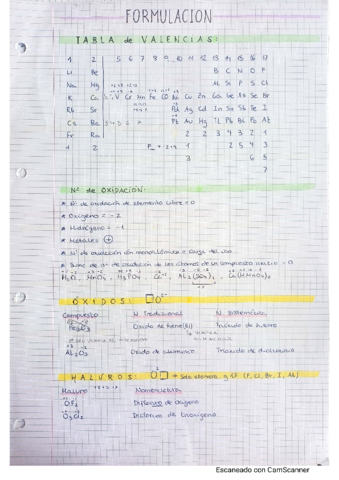 FORMULACION
TABLA de VALENCIAS:
1 2 5 6 7 8 9 10 11 12 13 14 15 16 17
Li Be B C N O F
Na Mg Al Si P S Cl
K Ca V Cr Mn Fe CO Ni Cu Zn Ga Ge As Se Br
Rb Sr Pd Ag Cd In Sn Sb Te I
Cs Ba Pt Au Hg Tl Pb Bi Po At
Fr Ra 2 2 3 4 3 2 1
1 2 1 2 5 4 3
3 6 5
7
Nº de OXIDACION:
* Nº de oxidación de elemento libre = 0
* Oxígeno = -2
* Hidrógeno = -1
* Metales +
* Nº de oxidación ión monoatómico = carga del ión
* Suma de nº de oxidación de los átomos de un compuesto neutro = 0
H₂O, MnO₂, H₃PO₄, Al₂(SO₄)₃
ÓXIDOS: O
Compuesto N. Tradicional N. Sistemática
Fe₂O₃ Óxido de hierro(III) Trióxido de hierro
Al₂O₃ Óxido de aluminio Trióxido de dialuminio
HALUROS: O → Sólo elementos g.17 (F, Cl, Br, I, At)
Haluro Nomenclatura
OF₂ Difluoruro de oxígeno
O₃Cl₂ Dicloruro de trioxígeno
Escaneado con CamScanner